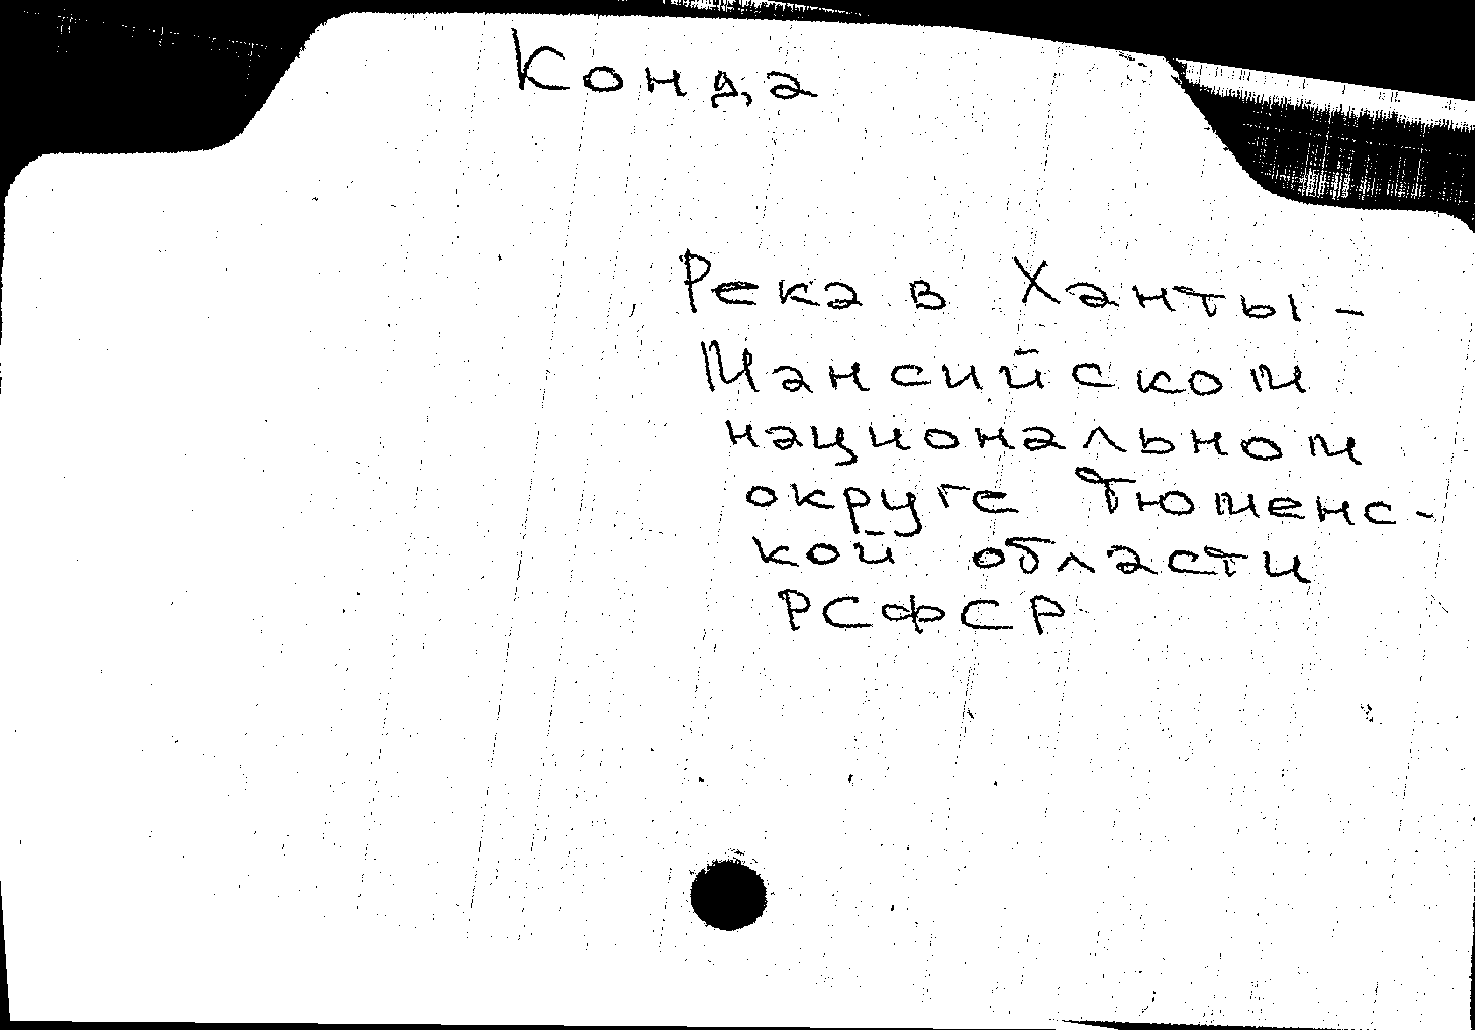 Конда
Река в Ханты-
Мансийском
национальном
округе Тюменс-
кой области
РСФСР